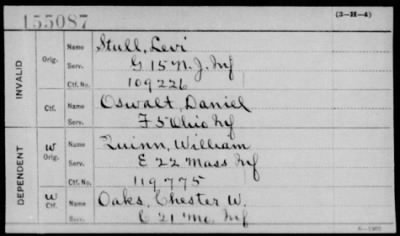 155087
(3-H-4)
INVALID
Orig. Name Stull, Levi
Serv. G 15 N. J. Inf
Ctf. No. 109226
Ctf. Name Oswalt, Daniel
Serv. F 5 Ohio Inf
DEPENDENT
W Orig. Name Quinn, William
Serv. E 22 Mass Inf
Ctf. No. 119775
W Ctf. Name Oaks, Chester W.
Serv. C 21 Me. Inf